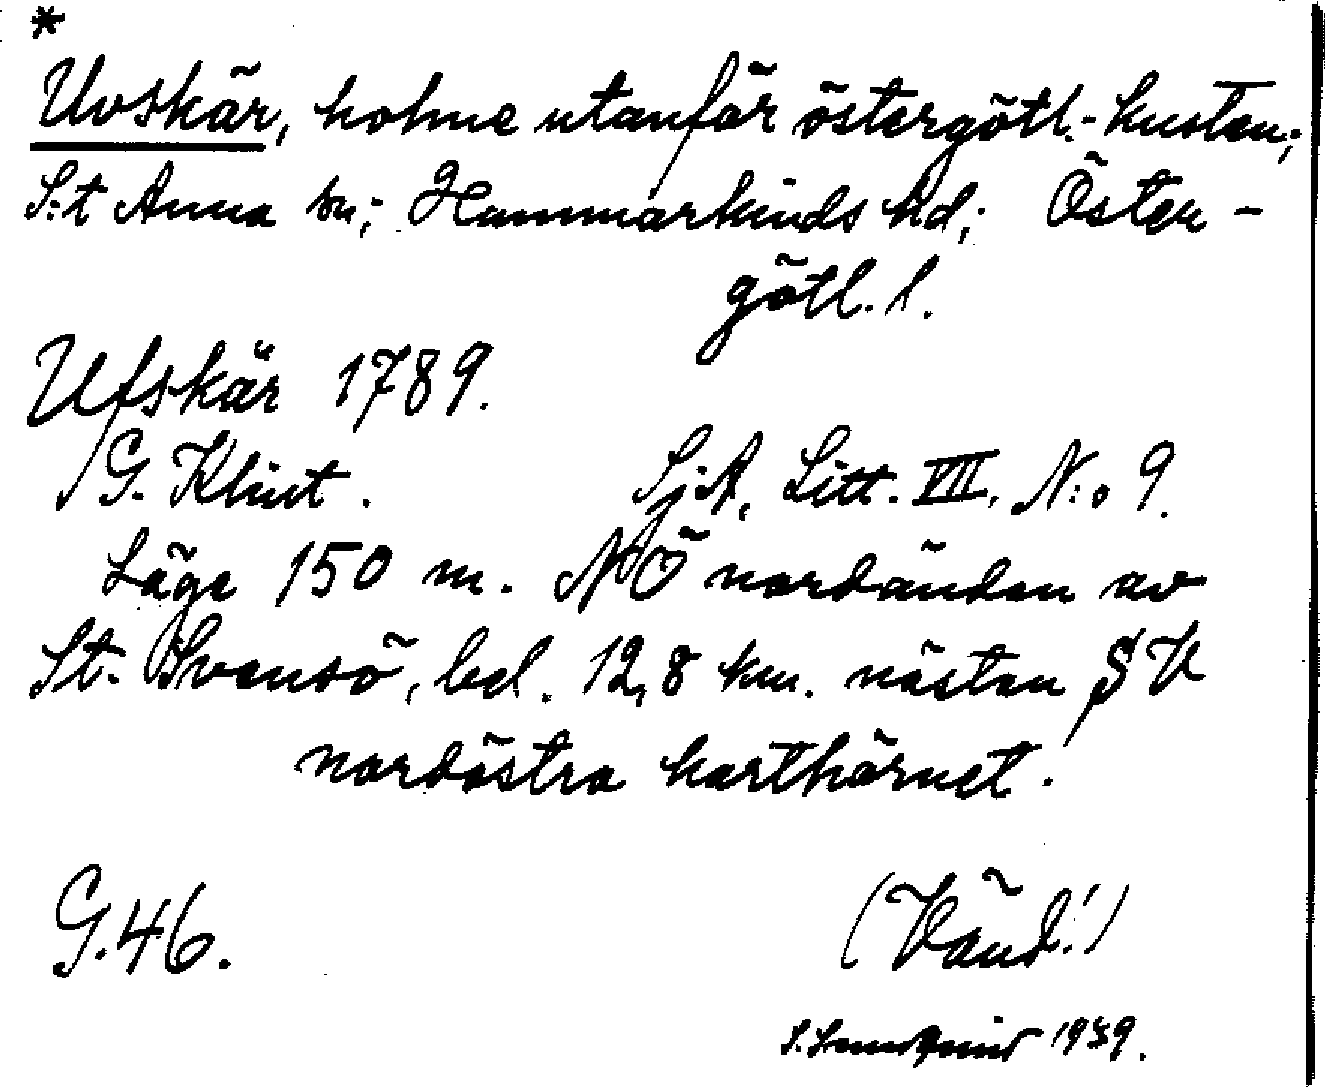 *
Uvskär, holme utanför östergötl.-kusten;
S:t Anna sn; Hammarkinds hd; Öster-
götl. l.
Ufskär 1789.
G. Klint. SjA, Litt. VII, N:o 9.
Läge 150 m. NÖ nordänden av
St. Svensö, bel. 12,8 km. nästan SV
nordöstra karthörnet.
G.46. (Vänd!)
S. 1939.